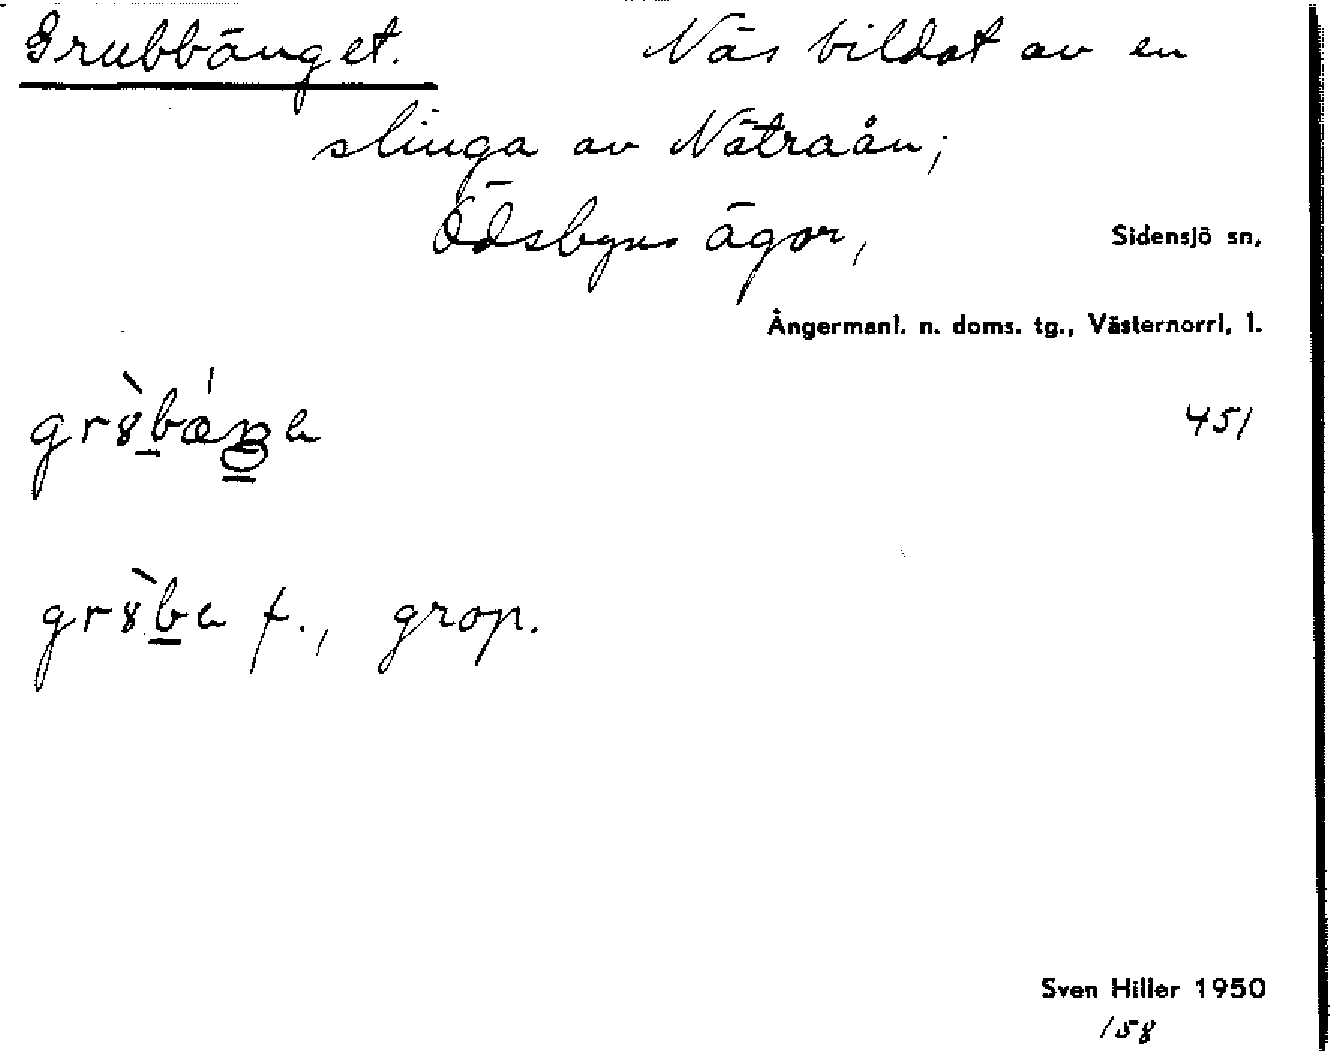 Grubbänget. Näs bildat av en
slinga av Nätraån;
Ödsbyns ägor, Sidensjö sn,
Ångermanl. n. doms. tg., Västernorrl. l.
451
f., grop.
Sven Hiller 1950
158